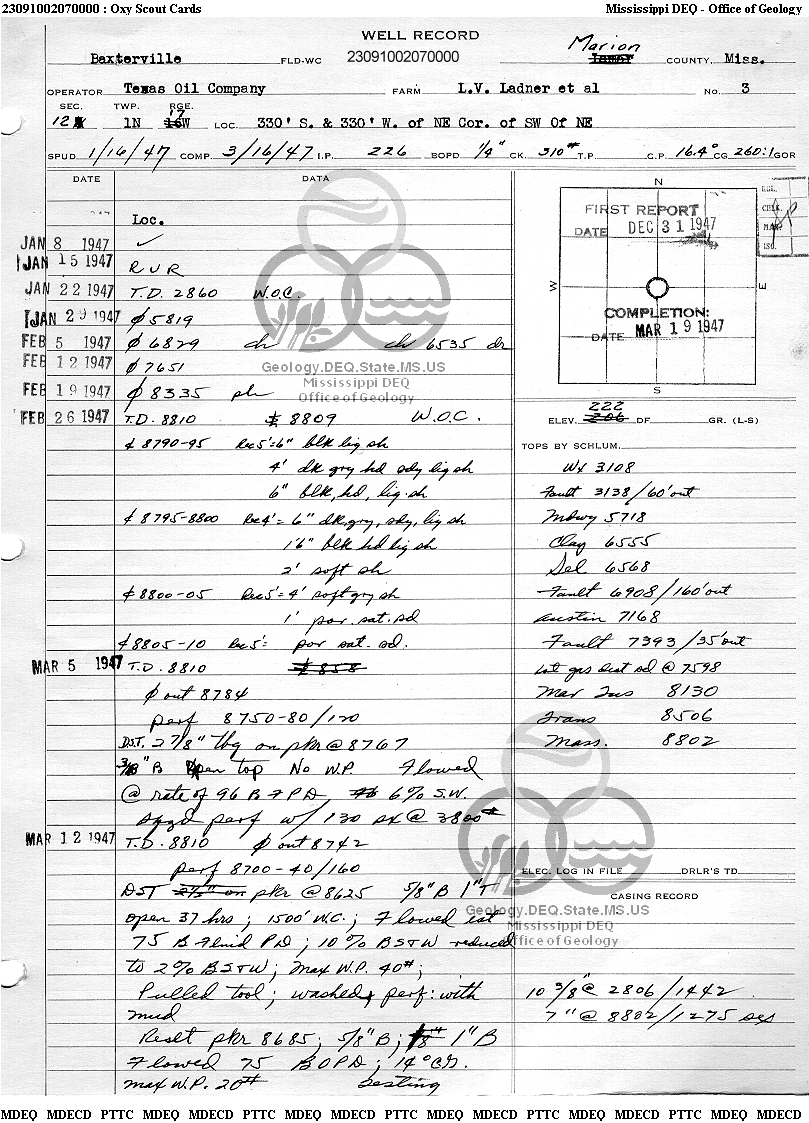 23091002070000 : Oxy Scout Cards Mississippi DEQ - Office of Geology
WELL RECORD
Baxterville FLD-WC 23091002070000 Marion Lamar COUNTY, Miss.
OPERATOR Texas Oil Company FARM L.V. Ladner et al No. 3
SEC. TWP. RGE.
12 1N 17 16W LOC. 330' S. & 330' W. of NE Cor. of SW Of NE
SPUD 1/16/47 COMP. 3/16/47 I.P. 226 BOPD 1/4" CK. 310# T.P. C.P. 16.4° CG 260:1 GOR
DATE DATA
Loc.
JAN 8 1947 ✓
JAN 15 1947 R U R
JAN 22 1947 T.D. 2860 W.O.C.
JAN 29 1947 ∅ 5819
FEB 5 1947 ∅ 6829 ch ch 6535
FEB 12 1947 ∅ 7651
FEB 19 1947 ∅ 8335
FEB 26 1947 T.D. 8810 8809 W.O.C.
₵ 8790-95 Rec 5'= 6" blk lig sh
4' dk gry hd sdy lig sh
6" blk, hd, lig. sh
₵ 8795-8800 Rec 4' = 6" dk, gry, sdy, lig sh
1'6" blk hd lig sh
2' soft sh
₵ 8800-05 Rec 5'= 4' soft gry sh
1' por. sat. sd
₵ 8805-10 Rec 5'= por sat. sd.
MAR 5 1947 T.D. 8810 858
∅ out 8784
perf 8750-80/120
DST. 2 7/8" tbg on pkr @ 8767
3/8" B Open top No W.P. Flowed
@ rate of 96 B F P D, 6% S.W.
Sqzd perf w/ 130 sx @ 3800#
MAR 12 1947 T.D. 8810 ∅ out 8742
perf 8700-40/160
DST pkr @ 8625 5/8" B 1" T
open 37 hrs; 1500' W.C.; Flowed est
75 B Fluid P D; 10% BS+W reduced
to 2% BS+W; max W.P. 40#;
Pulled tool; washed perf. with
mud
Reset pkr 8685; 5/8" B; 1" B
Flowed 75 B O P D; 14° CG.
max W.P. 20# testing
N
W
E
S
FIRST REPORT
DATE DEC 31 1947
COMPLETION:
DATE MAR 19 1947
REL.
CHK.
MAP.
222
ELEV. 206 DF GR. (L-S)
TOPS BY SCHLUM.
Wx 3108
Fault 3138/60' out
Mdwy 5718
Clay 6555
Sel 6568
Fault 6908/160' out
Austin 7168
Fault 7393/35' out
1st gns dist sd @ 7598
Mar Tus 8130
Trans 8506
Mass. 8802
ELEC. LOG IN FILE DRLR'S TD.
CASING RECORD
10 3/8" @ 2806/1442
7" @ 8802/1275 sxs
Geology.DEQ.State.MS.US
Mississippi DEQ
Office of Geology
Geology.DEQ.State.MS.US
Mississippi DEQ
Office of Geology
MDEQ MDECD PTTC MDEQ MDECD PTTC MDEQ MDECD PTTC MDEQ MDECD PTTC MDEQ MDECD PTTC MDEQ MDECD